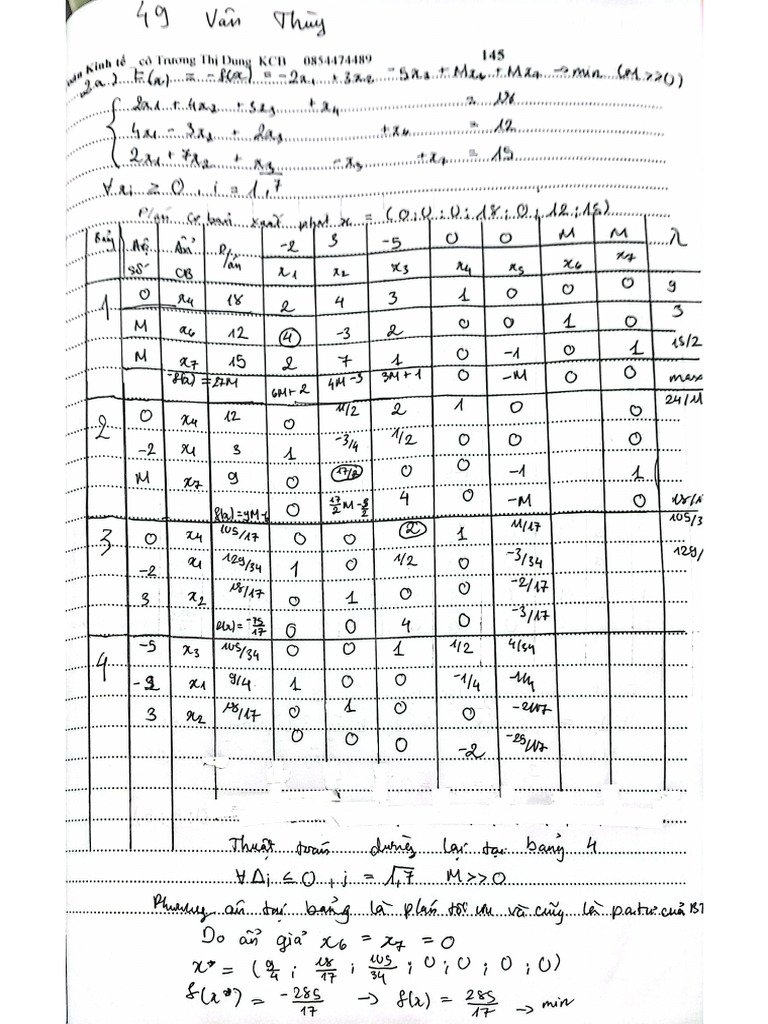 49 Vân Thùy
oán Kinh tế cô Trương Thị Dung KCB 0854474489 145
2a.) F(x) = -f(x) = -2x1 + 3x2 - 5x3 + Mx6 + Mx7 → min (M>>0)
2x1 + 4x2 + 3x3 + x4 = 18
4x1 - 3x2 + 2x3 + x6 = 12
2x1 + 7x2 + x3 - x5 + x7 = 15
∀xi ≥ 0, i = 1,7
P/án cơ bản xuất phát x = (0;0;0;18;0;12;15)
Bảng Hệ số Ẩn CB P/án -2 3 -5 0 0 M M λ
x1 x2 x3 x4 x5 x6 x7
1 0 x4 18 2 4 3 1 0 0 0 9
M x6 12 4 -3 2 0 0 1 0 3
M x7 15 2 7 1 0 -1 0 1 15/2
f(x) = 27M 6M+2 4M-3 3M+1 0 -M 0 0 max
2 0 x4 12 0 11/2 2 1 0 0 24/11
-2 x1 3 1 -3/4 1/2 0 0 0
M x7 9 0 17/2 0 0 -1 1
f(x)=9M-6 0 17/2 M - 3/2 4 0 -M 0 18/1
3 0 x4 105/17 0 0 2 1 11/17 105/3
-2 x1 129/34 1 0 1/2 0 -3/34 129/
3 x2 18/17 0 1 0 0 -2/17
f(x)= -75/17 0 0 4 0 -3/17
4 -5 x3 105/34 0 0 1 1/2 4/34
-2 x1 9/4 1 0 0 -1/4 -1/4
3 x2 18/17 0 1 0 0 -2/17
0 0 0 -2 -25/17
Thuật toán dừng lại tại bảng 4
∀Δi ≤ 0, i = 1,7 M>>0
Phương án tại bảng là p/án tối ưu và cũng là patư của BT
Do ẩn giả x6 = x7 = 0
x* = (9/4; 18/17; 105/34; 0; 0; 0; 0)
f(x*) = -285/17 → f(x) = 285/17 → min